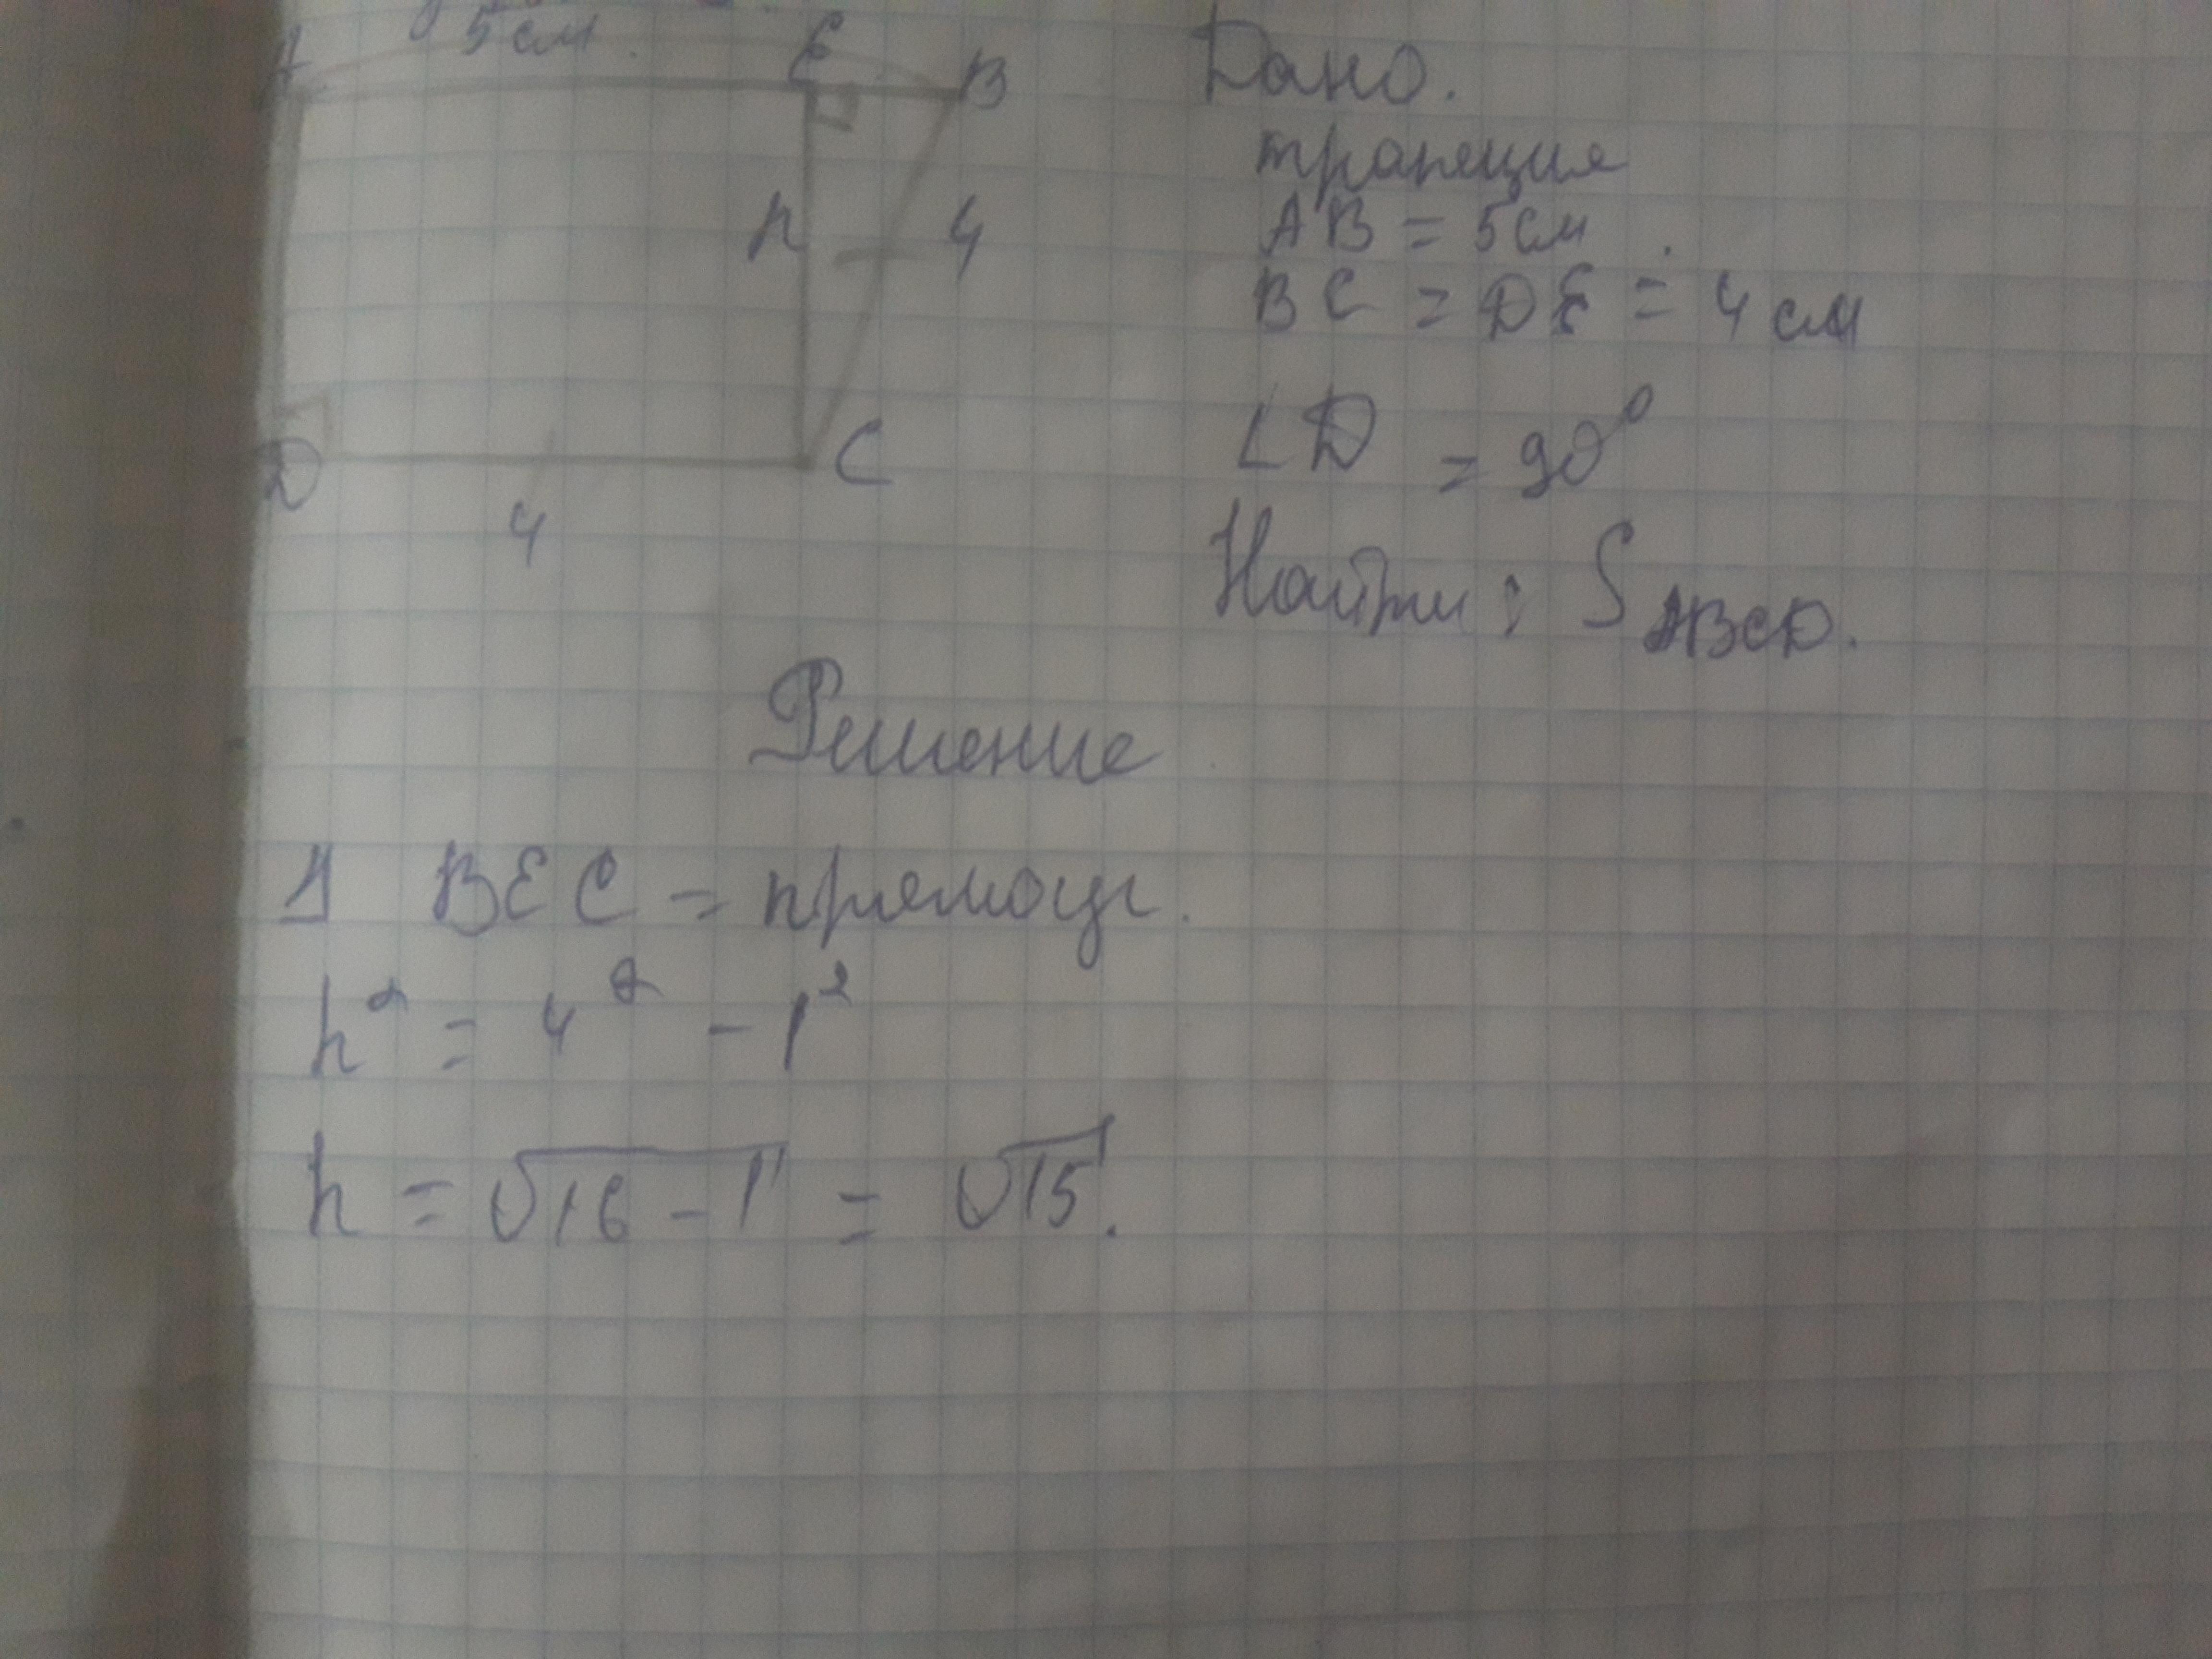 5 см.
A E B
h 4
D C
4
Дано.
трапеция
AB = 5 см
BC = DE = 4 см
∠D = 90°
Найти: S ABCD.
Решение
BEC = прямоуг.
h² = 4² - 1²
h = √16 - 1 = √15.